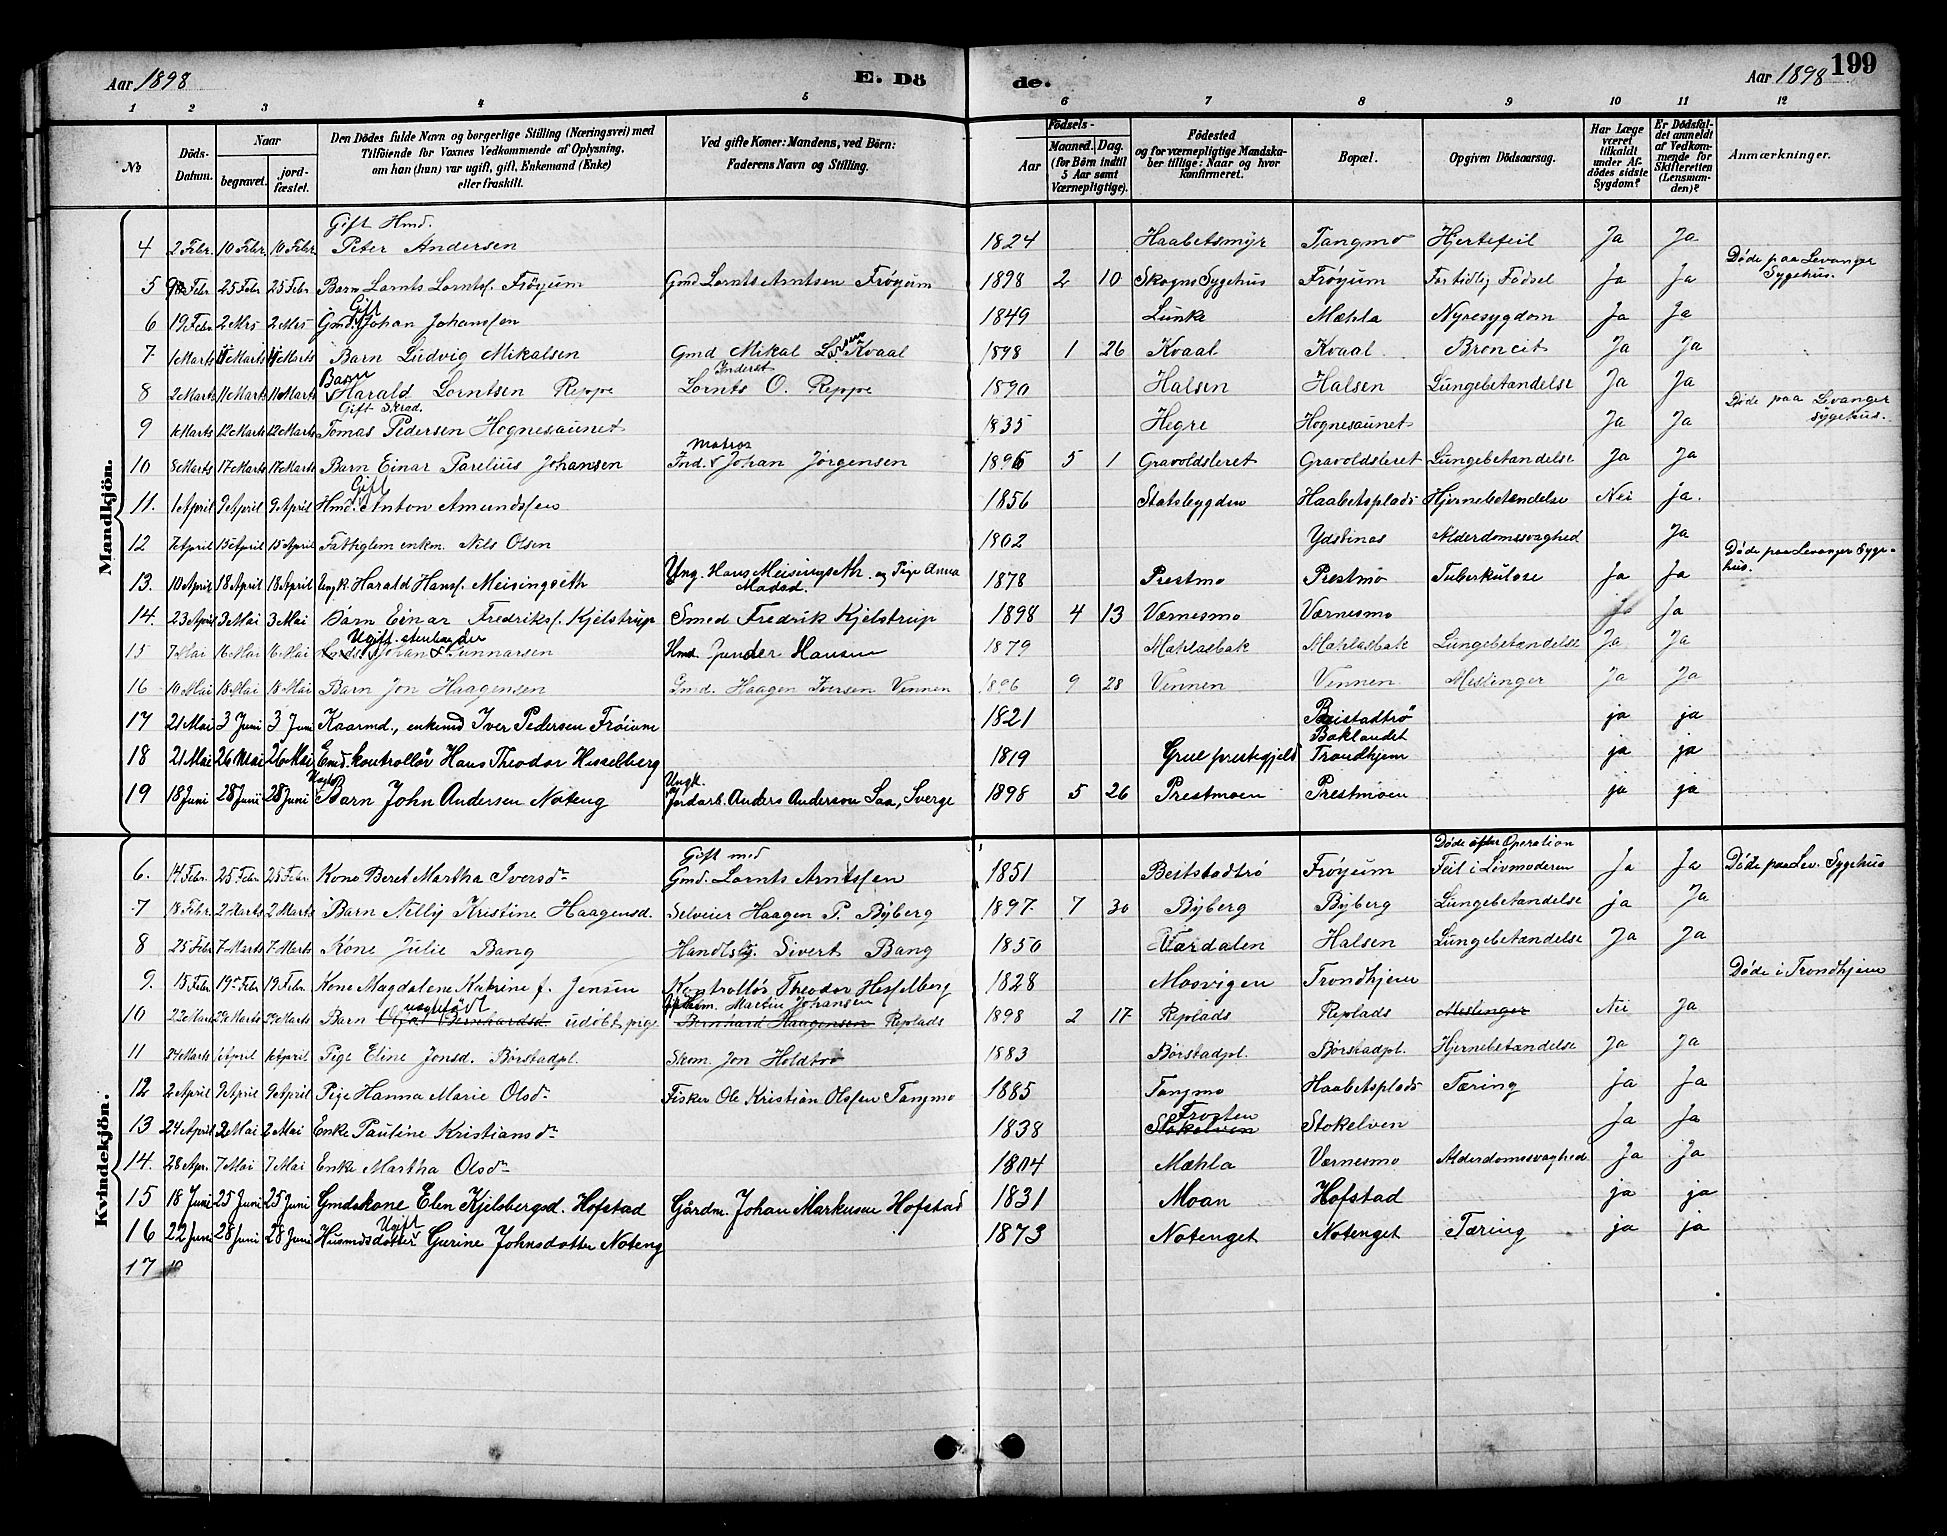 Aar 1898 E. Dö de. Aar 1898 199
1 2 3 4 5 6 7 8 9 10 11 12
№ Döds-Datum. Naar begravet. jord-fæstet. Den Dödes fulde Navn og borgerlige Stilling (Næringsvei) med Tilföiende for Voxnes Vedkommende af Oplysning, om han (hun) var ugift, gift, Enkemand (Enke) eller fraskilt. Ved gifte Koner: Mandens, ved Börn: Faderens Navn og Stilling. Födsels- Aar Maaned. Dag. (for Börn indtil 5 Aar samt Værnepligtige). Födested og for værnepligtige Mandskaber tillige: Naar og hvor Konfirmeret. Bopæl. Opgiven Dödsaarsag. Har Læge været tilkaldt under Afdödes sidste Sygdom? Er Dödsfaldet anmeldt af Vedkommende for Skifteretten (Lensmanden)? Anmærkninger.
Mandkjön.
Gift Hmd.
4 2 Febr. 10 Febr 10 Febr Peter Andersen 1824 Haabetsmyr Tangmo Hjertefeil Ja Ja
5 Febr 25 Febr 25 Febr Barn Lornts Lorntss. Fröyum Gmd Lornts Arntsen Fröyum 1898 2 10 Skogns Sygehus Fröyum For tidlig Födsel Ja Ja Döde paa Levanger Sygehus.
6 19 Febr 2 Mrs 2 Mrs Gmd. Gift Johan Johanssen 1849 Lunke Mæhla Nyresygdom Ja Ja
7. 1 Marts Marts Marts Barn Ludvig Mikalsen Gmd Mikal Kvaal 1898 1 26 Kvaal Kvaal Broncit Ja Ja
8 2 Marts 11 Marts 11 Marts Barn Harald Lorntsen Reppe Inderst Lornts O. Reppe 1890 Halsen Halsen Lungebetændelse Ja Ja
9 Marts 12 Marts 12 Marts Gift Skrad. Tomas Pedersen Hognesaunet 1835 Hegre Hognesaunet Ja Ja Döde paa Levanger Sygehus.
10 8 Marts 17 Marts 17 Marts Barn Einar Parelius Johansen Ind. Matros Johan Jörgensen 1896 5 1 Gravoldsleret Gravoldsleret Lungebetændelse Ja Ja
11. 1 April 9 April 9 April Hmd. Gift Anton Amundssen 1856 Statsbygden Haabetsplads Hjernebetændelse Nei ja.
12 7 April 15 April 15 April Fattiglem enkm. Nils Olsen 1802 Ydstines Alderdomssvaghed Ja
13. 10 April 18 April 18 April Ungk. Harald Hanss. Meisingseth Ung. Hans Meisingseth. og Pige Anna Madsd. 1878 Prestmo Prestmo Tuberkulose Ja Ja Döde paa Levanger Sygehus.
14. 23 April 3 Mai 3 Mai Barn Einar Fredrikss. Kjelstrup Smed Fredrik Kjelstrup 1898 4 13 Værnesmo Værnesmo Ja Ja
15 7 Mai 16 Mai 16 Mai Ugift stenhugder Johan Gunnarsen Hmd. Gunder Hansen 1879 Mæhlasbak Mæhlasbak Lungebetændelse Ja Ja
16 10 Mai 18 Mai 18 Mai Barn Jon Haagensen Gmd. Haagen Iversen Vennen 1896 9 28 Vennen Vennen Meslinger Ja Ja
17 21 Mai 3 Juni 3 Juni Kaarmd., enkemd Iver Pedersen Fröiune 1821 Beistadtrö ja ja
18 21 Mai 26 Mai 26 Mai Emd. kontrollör Hans Theodor Hesselberg 1819 Grue prestegjeld Baklandet Trondhjem ja ja
19 18 Juni 28 Juni 28 Juni Uægte Barn John Andersen Noteng Ungk. Jordarb. Anders Anderson Saa, Sverge 1898 5 26 Prestmoen Prestmoen ja ja
Kvindekjön.
6. 14 Febr. 25 Febr. 25 Febr. Kone Beret Martha Iversdr Gift med Gmd. Lornts Arntssen 1851 Beitstadtrö Fröyum Döde efter Operation Feil i Livmoderen Ja Ja Döde paa Lev. Sygehus
7 18 Febr. 2 Marts 2 Marts Barn Nelly Kristine Haagensd. Selveier Haagen P. Byberg 1897. 7 30 Byberg Byberg Lungebetændelse ja Ja
8 25 Febr 7 Marts 7 Marts Kone Julie Bang Handlsbj. Sivert Bang 1850 Værdalen Halsen Lungebetændelse Ja Ja
9. 15 Febr. 19 Febr. 19 Febr. Kone Magdalene Katrine f. Jensen Kontrollör Theodor Hesselberg 1828 Mosvigen Trondhjem Döde i Trondhjem
10 22 Mar. 29 Marts 29 Marts Barn uægtefödt udöbt pige Martin Johansen Bernhard Haagensen Replads 1898 2 17 Replads Replads Meslinger Nei Ja
11 24 Marts 6 April 6 April Pige Eline Jonsd. Börstadpl. Skom. Jon Holdtrö 1883 Börstadpl. Börstadpl. Hjernebetændelse Ja Ja
12 2 April 9 April 9 April Pige Hanna Marie Olsdr Fisker Ole Kristian Olssen Tangmo 1885 Tangmo Haabetsplads Tæring Ja Ja
13 24 April 2 Mai 2 Mai Enke Pauline Kristiansdr 1838 Frosten Stokelven Stokelven Ja Ja
14. 28 Apr. 7 Mai 7 Mai Enke Martha Olsdr 1804 Mæhla Værnesmo Alderdomssvaghed Ja Ja
15 18 Juni 25 Juni 25 Juni Gmdskone Elen Kjelsbergsd. Hofstad Gårdm. Johan Markusen Hofstad 1831 Moan Hofstad ja ja
16 22 Juni 28 Juni 28 Juni Husmdsdatter Ugift Gurine Johnsdotter Noteng 1873 Notenget Notenget Tæring ja ja
17